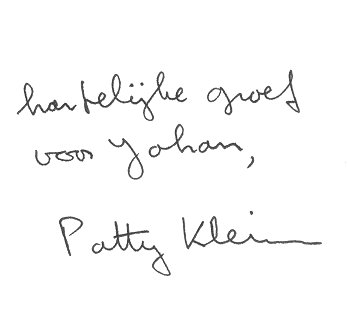 hartelijke groet
voor Yohan,
Patty Klein